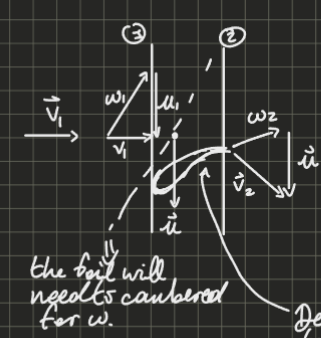 ③ ②
V⃗₁ w₁ u₁ w₂
v₁ v⃗₂ u⃗
u⃗
the foil will
needto cambered
for w.
De